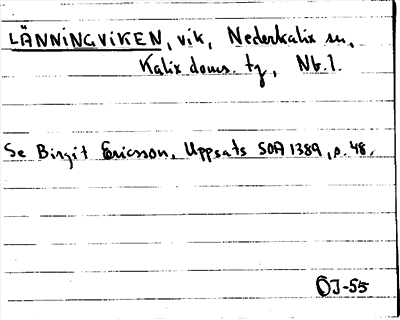 LÄNNINGVIKEN, vik, Nederkalix sn,
Kalix doms. tg, Nb. l.
Se Birgit Ericsson, Uppsats SOA 1389, s. 48.
ÖJ-55